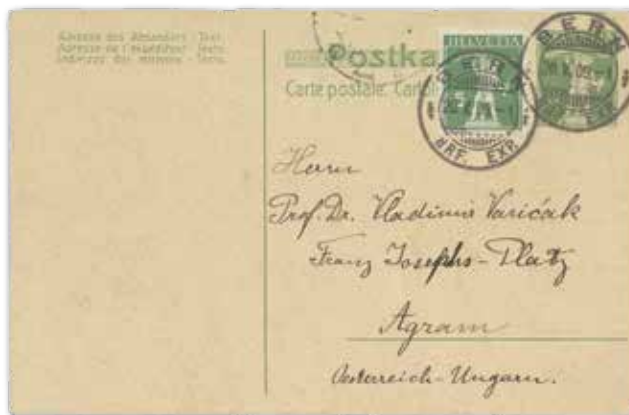 Adresse des Absenders - Text.
Adresse de l'expéditeur - Texte.
Indirizzo del mittente - Testo.
Postka
Carte postale. Cartol
HELVETIA
BERN
BRF. EXP.
BERN
EXP.
Herrn
Prof. Dr. Vladimir Varićak
Franz Josephs-Platz
Agram
Oesterreich-Ungarn.